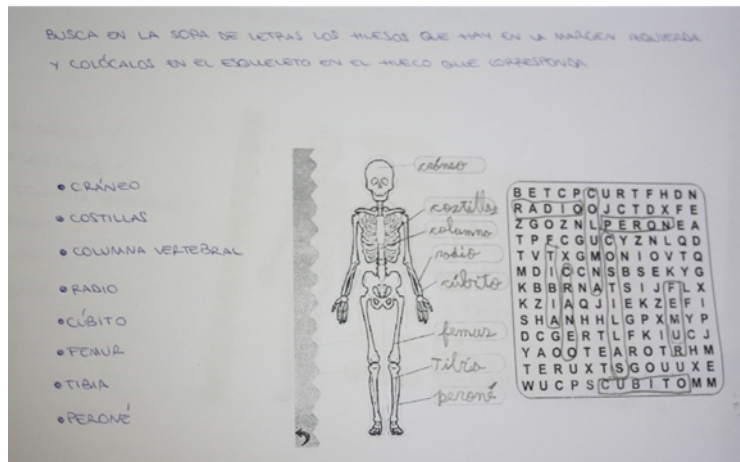 BUSCA EN LA SOPA DE LETRAS LOS HUESOS QUE HAY EN LA MARGEN IZQUIERDA
Y COLÓCALOS EN EL ESQUELETO EN EL HUECO QUE CORRESPONDA
• CRÁNEO
• COSTILLAS
• COLUMNA VERTEBRAL
• RADIO
• CÚBITO
• FEMUR
• TIBIA
• PERONÉ
cráneo
costillas
columna
radio
cúbito
femur
Tibia
peroné
B E T C P C U R T F H D N
R A D I O O J C T D X F E
Z G O Z N L P E R O N E A
T P F C G U C Y Z N L Q D
T V T X G M O N I O V T Q
M D I C C N S B S E K Y G
K B B R N A T S I J F L X
K Z I A Q J I E K Z E F I
S H A N H H L G P X M Y P
D C G E R T L F K I U C J
Y A O O T E A R O T R H M
T E R U X T S G O U U X E
W U C P S C U B I T O M M